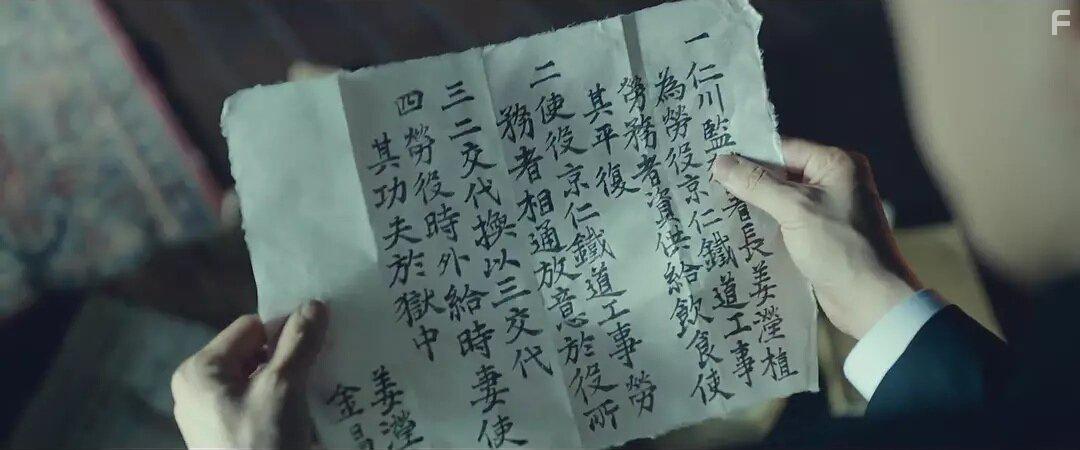 一仁川監 者長姜瀅植
為勞役京仁鐵道工事
勞務者資供給飲食使
其平復
二使役京仁鐵道工事勞
務者相通放意於役所
三二交代換以三交代
四勞役時外給時妻使
其功夫於獄中
姜瀅
金昌
F